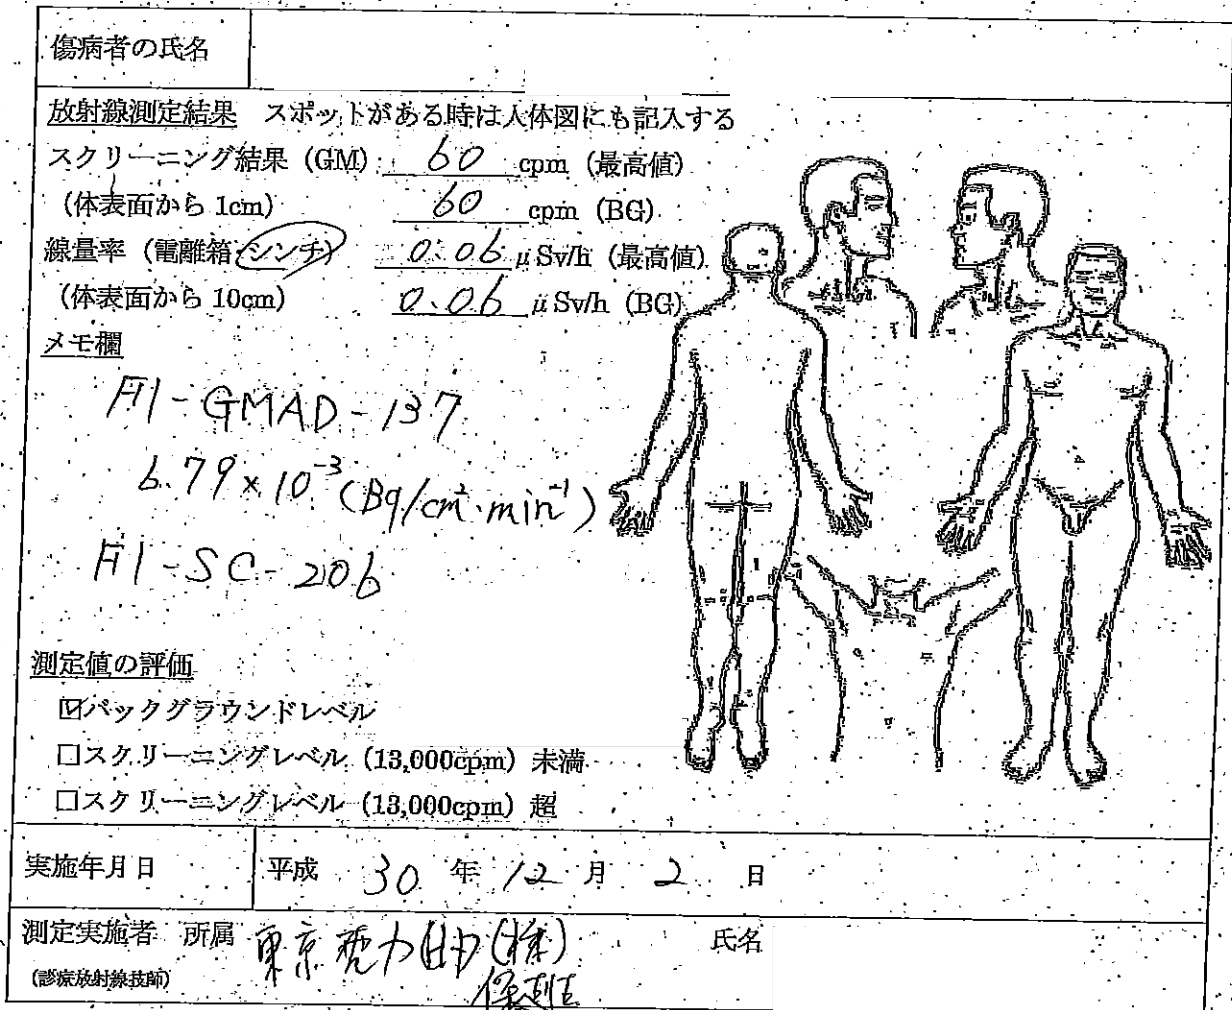 傷病者の氏名
放射線測定結果 スポットがある時は人体図にも記入する
スクリーニング結果 (GM) 60 cpm (最高値)
(体表面から 1cm) 60 cpm (BG)
線量率 (電離箱・シンチ) 0.06 μSv/h (最高値)
(体表面から 10cm) 0.06 μSv/h (BG)
メモ欄
F1-GMAD-137
6.79×10⁻³(Bq/cm²·min⁻¹)
F1-SC-206
測定値の評価
☑バックグラウンドレベル
□スクリーニングレベル (13,000cpm) 未満
□スクリーニングレベル (13,000cpm) 超
実施年月日 平成 30 年 12 月 2 日
測定実施者 所属 東京電力 (株) 氏名
(診療放射線技師)